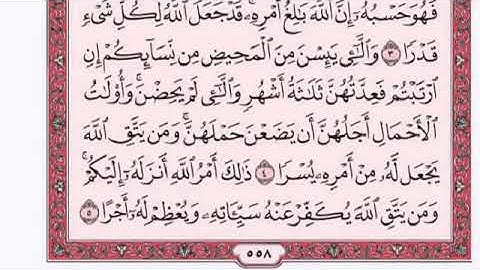 فَهُوَ حَسْبُهُۥٓ إِنَّ ٱللَّهَ بَٰلِغُ أَمْرِهِۦ ۚ قَدْ جَعَلَ ٱللَّهُ لِكُلِّ شَىْءٍ
قَدْرًا ٣ وَٱلَّٰٓـِٔى يَئِسْنَ مِنَ ٱلْمَحِيضِ مِن نِّسَآئِكُمْ إِنِ
ٱرْتَبْتُمْ فَعِدَّتُهُنَّ ثَلَٰثَةُ أَشْهُرٍ وَٱلَّٰٓـِٔى لَمْ يَحِضْنَ ۚ وَأُو۟لَٰتُ
ٱلْأَحْمَالِ أَجَلُهُنَّ أَن يَضَعْنَ حَمْلَهُنَّ ۚ وَمَن يَتَّقِ ٱللَّهَ
يَجْعَل لَّهُۥ مِنْ أَمْرِهِۦ يُسْرًا ٤ ذَٰلِكَ أَمْرُ ٱللَّهِ أَنزَلَهُۥٓ إِلَيْكُمْ ۚ
وَمَن يَتَّقِ ٱللَّهَ يُكَفِّرْ عَنْهُ سَيِّـَٔاتِهِۦ وَيُعْظِمْ لَهُۥٓ أَجْرًا ٥
٥٥٨